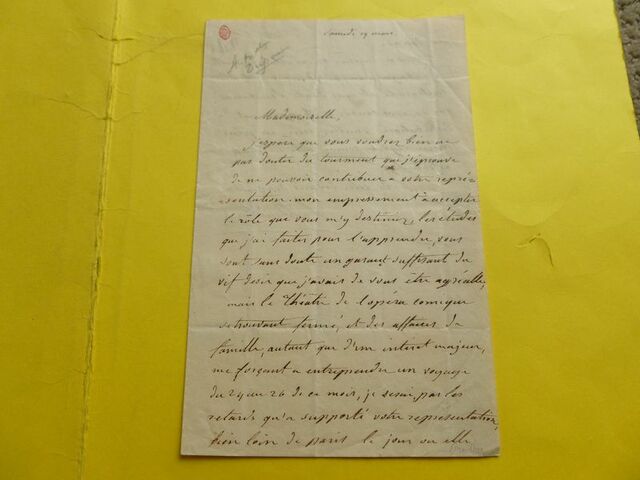 Samedi 19 mars
Mademoiselle,
j'espere que vous voudrez bien ne
pas douter du tourment que j'éprouve
de ne pouvoir contribuer a votre repré
sentation. mon empressement a accepter
le rôle que vous m'y destiniez, les études
que j'ai faites pour l'apprendre, vous
sont sans doute un garant suffisant du
vif desir que j'avais de vous être agréable,
mais le théâtre de l'opéra comique
se trouvant fermé, et des affaires de
famille, autant que d'un interet majeur,
me forçant a entreprendre un voyage
du 24 au 26 de ce mois, je serai, par les
retards qu'a supporté votre representation,
bien loin de paris le jour ou elle